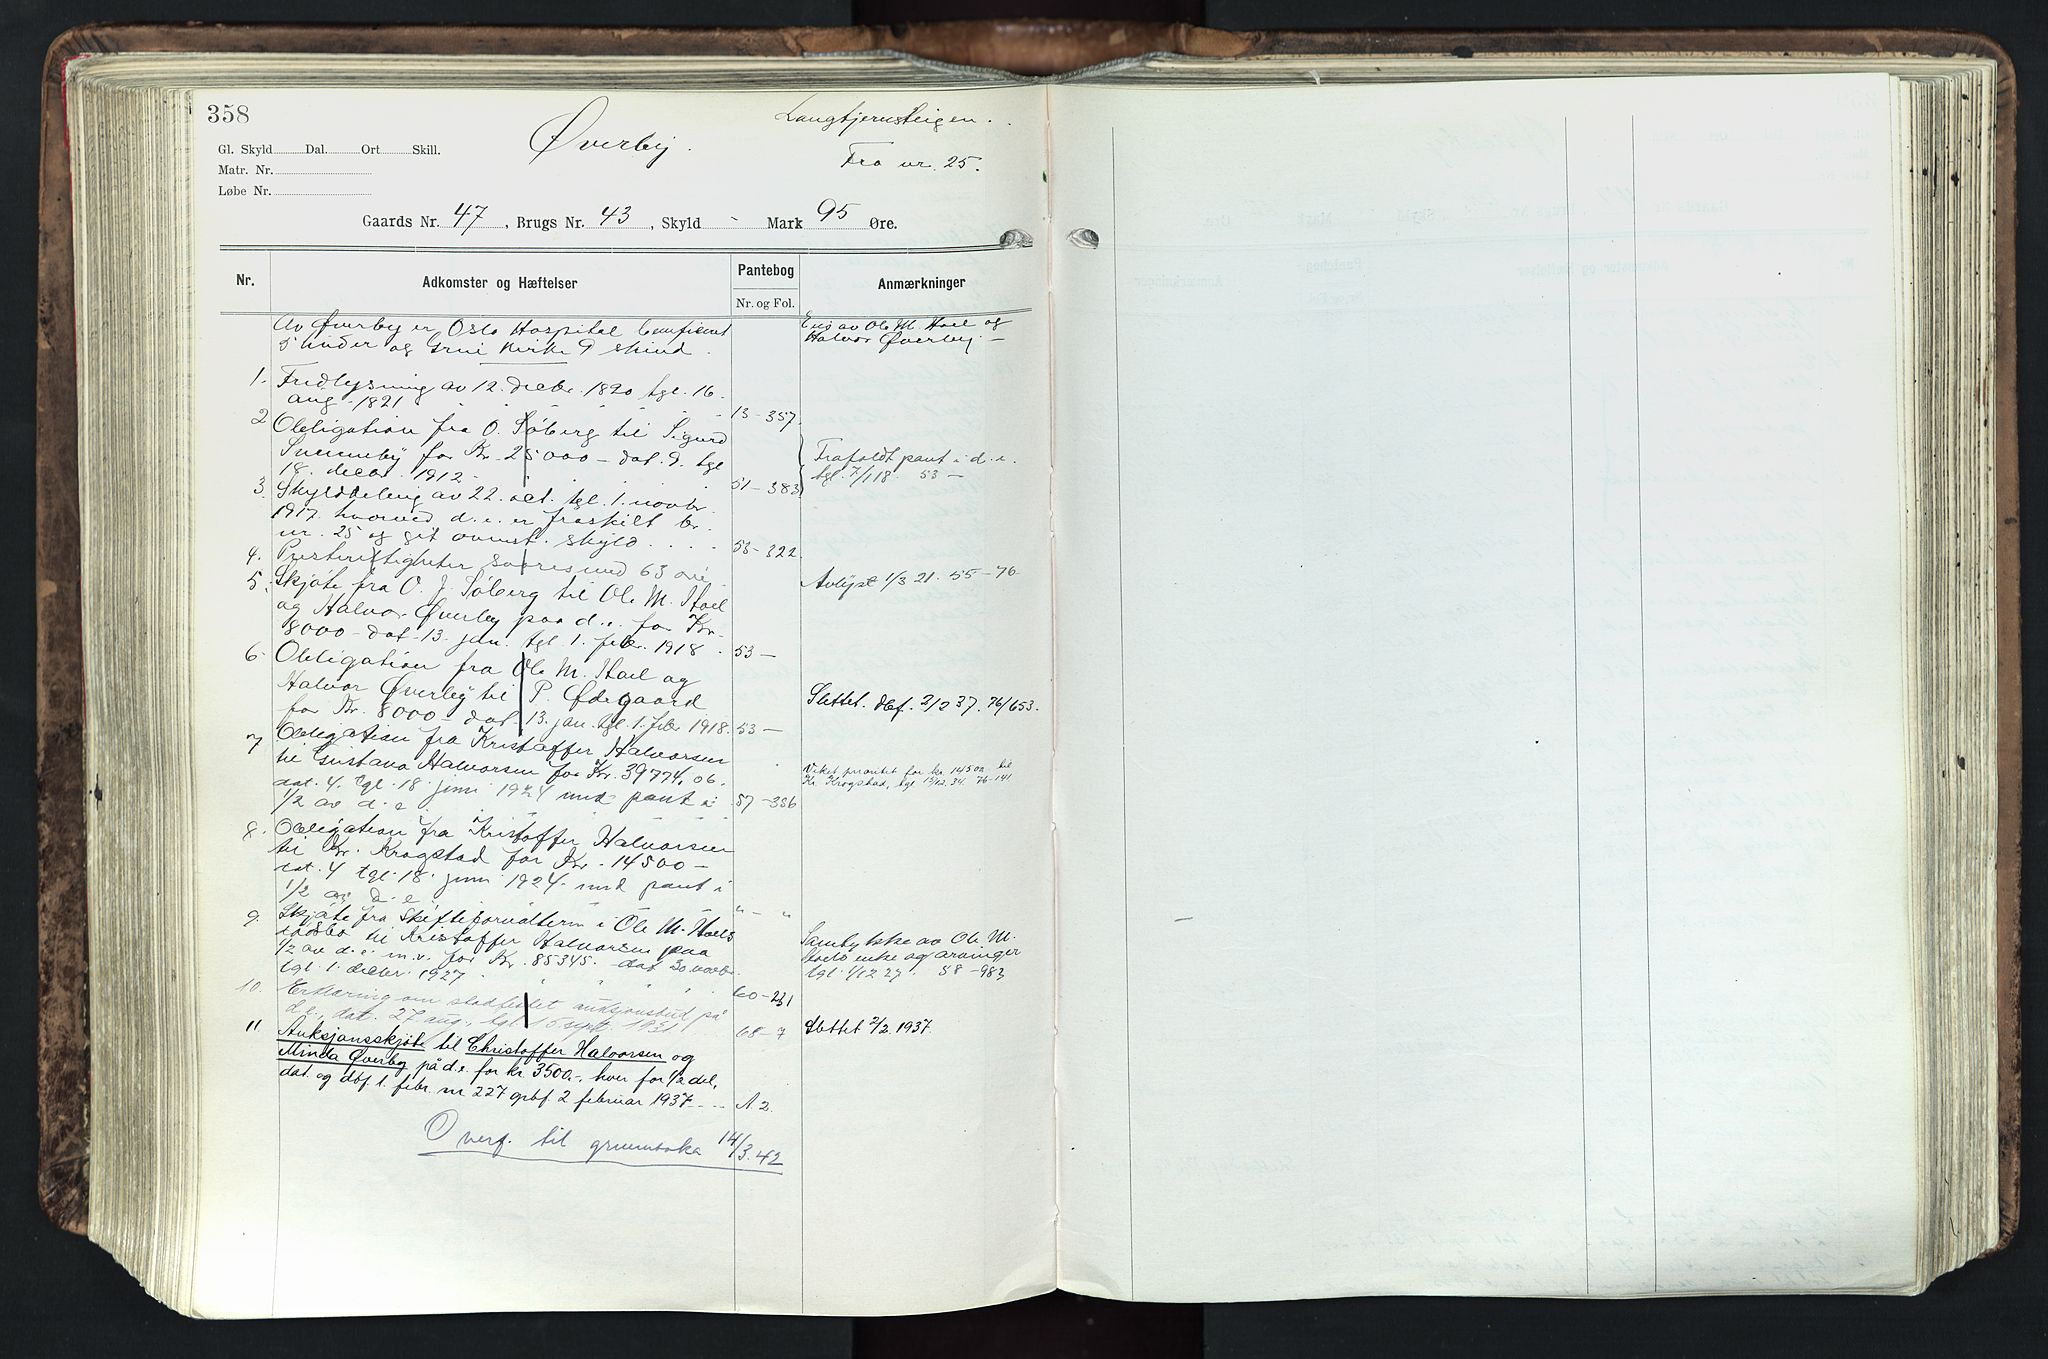 358
Langtjernsteigen.
Øverby.
Gl. Skyld Dal. Ort Skill.
Fra nr. 25.
Matr. Nr.
Løbe Nr.
Gaards Nr. 47, Brugs Nr. 43, Skyld - Mark 95 Øre.
Nr. Adkomster og Hæftelser Pantebog Anmærkninger
Nr. og Fol.
Av Øverby er Oslo Hospital beneficeret
5 huder og Grue Kirke 9 skind.
Eies av Ole M. Hoel og
Halvor Øverby. —
1. Fredlysning av 12. decbr. 1820 tgl. 16.
aug. 1821 13-357
2 Obligation fra O. Søberg til Sigurd
for Kr. 25000 — dat. 9. tgl
18. decbr. 1912. 51-383
Frafaldt pant i d. e.
tgl. 7/1 18. 53 —
3. Skylddeling av 22. oct. tgl. 1. novbr.
1917 hvorved d. e. er fraskilt br.
nr. 25 og git ovenst. skyld. . . . 53-322
4. Presterettigheter svares med 63 øre.
Avlyst 1/3 21. 55-76
5. Skjøte fra O. J. Søberg til Ole M. Hoel
og Halvor Øverby paa d. e. for Kr.
8000 — dat. 13. jan. tgl. 1. febr. 1918. 53 —
6. Obligation fra Ole M. Hoel og
Halvor Øverby til P. Ødegaard
for Kr. 8000 — dat. 13. jan. tgl. 1. febr 1918. 53 —
Slettet. dbf. 2/2 37. 76/653.
7 Obligation fra Kristoffer Halvorsen
til Gustava Halvorsen for Kr. 39774,06.
dat. 4. tgl. 18 juni 1924 med pant i
1/2 av d. e. 57-336
Veket prioritet for kr. 14500 til
Kr. Krogstad, tgl 15/12.34. 76-141.
8. Obligation fra Kristoffer Halvorsen
til Kr. Krogstad for Kr. 14500 —
dat. 4 tgl. 18. juni 1924. med pant i
1/2 av d. e. " - "
9. Skjøte fra Skifteforvalteren i Ole M. Hoels
dødsbo til Kristoffer Halvorsen paa
1/2 av d. e. m. v. for Kr. 85345. dat 30 novbr.
tgl. 1. decbr. 1927. 60-231
Samtykke av Ole M.
Hoels enke og arvinger
tgl. 1/12 27. 58-983
10. Erklæring om stadfestet auksjonsbud på
d. e., dat. 27 aug., tgl. 15 sept. 1931 68-7
Slettet 2/2. 1937.
11 Auksjonsskjøte til Christoffer Halvorsen og
Minda Øverby på d. e. for kr. 3500.-, hver for 1/2 del,
dat. og dbf. 1. febr. nr 227 gbf. 2 februar 1937. A. 2.
Overf. til grunnboka 14/3.42